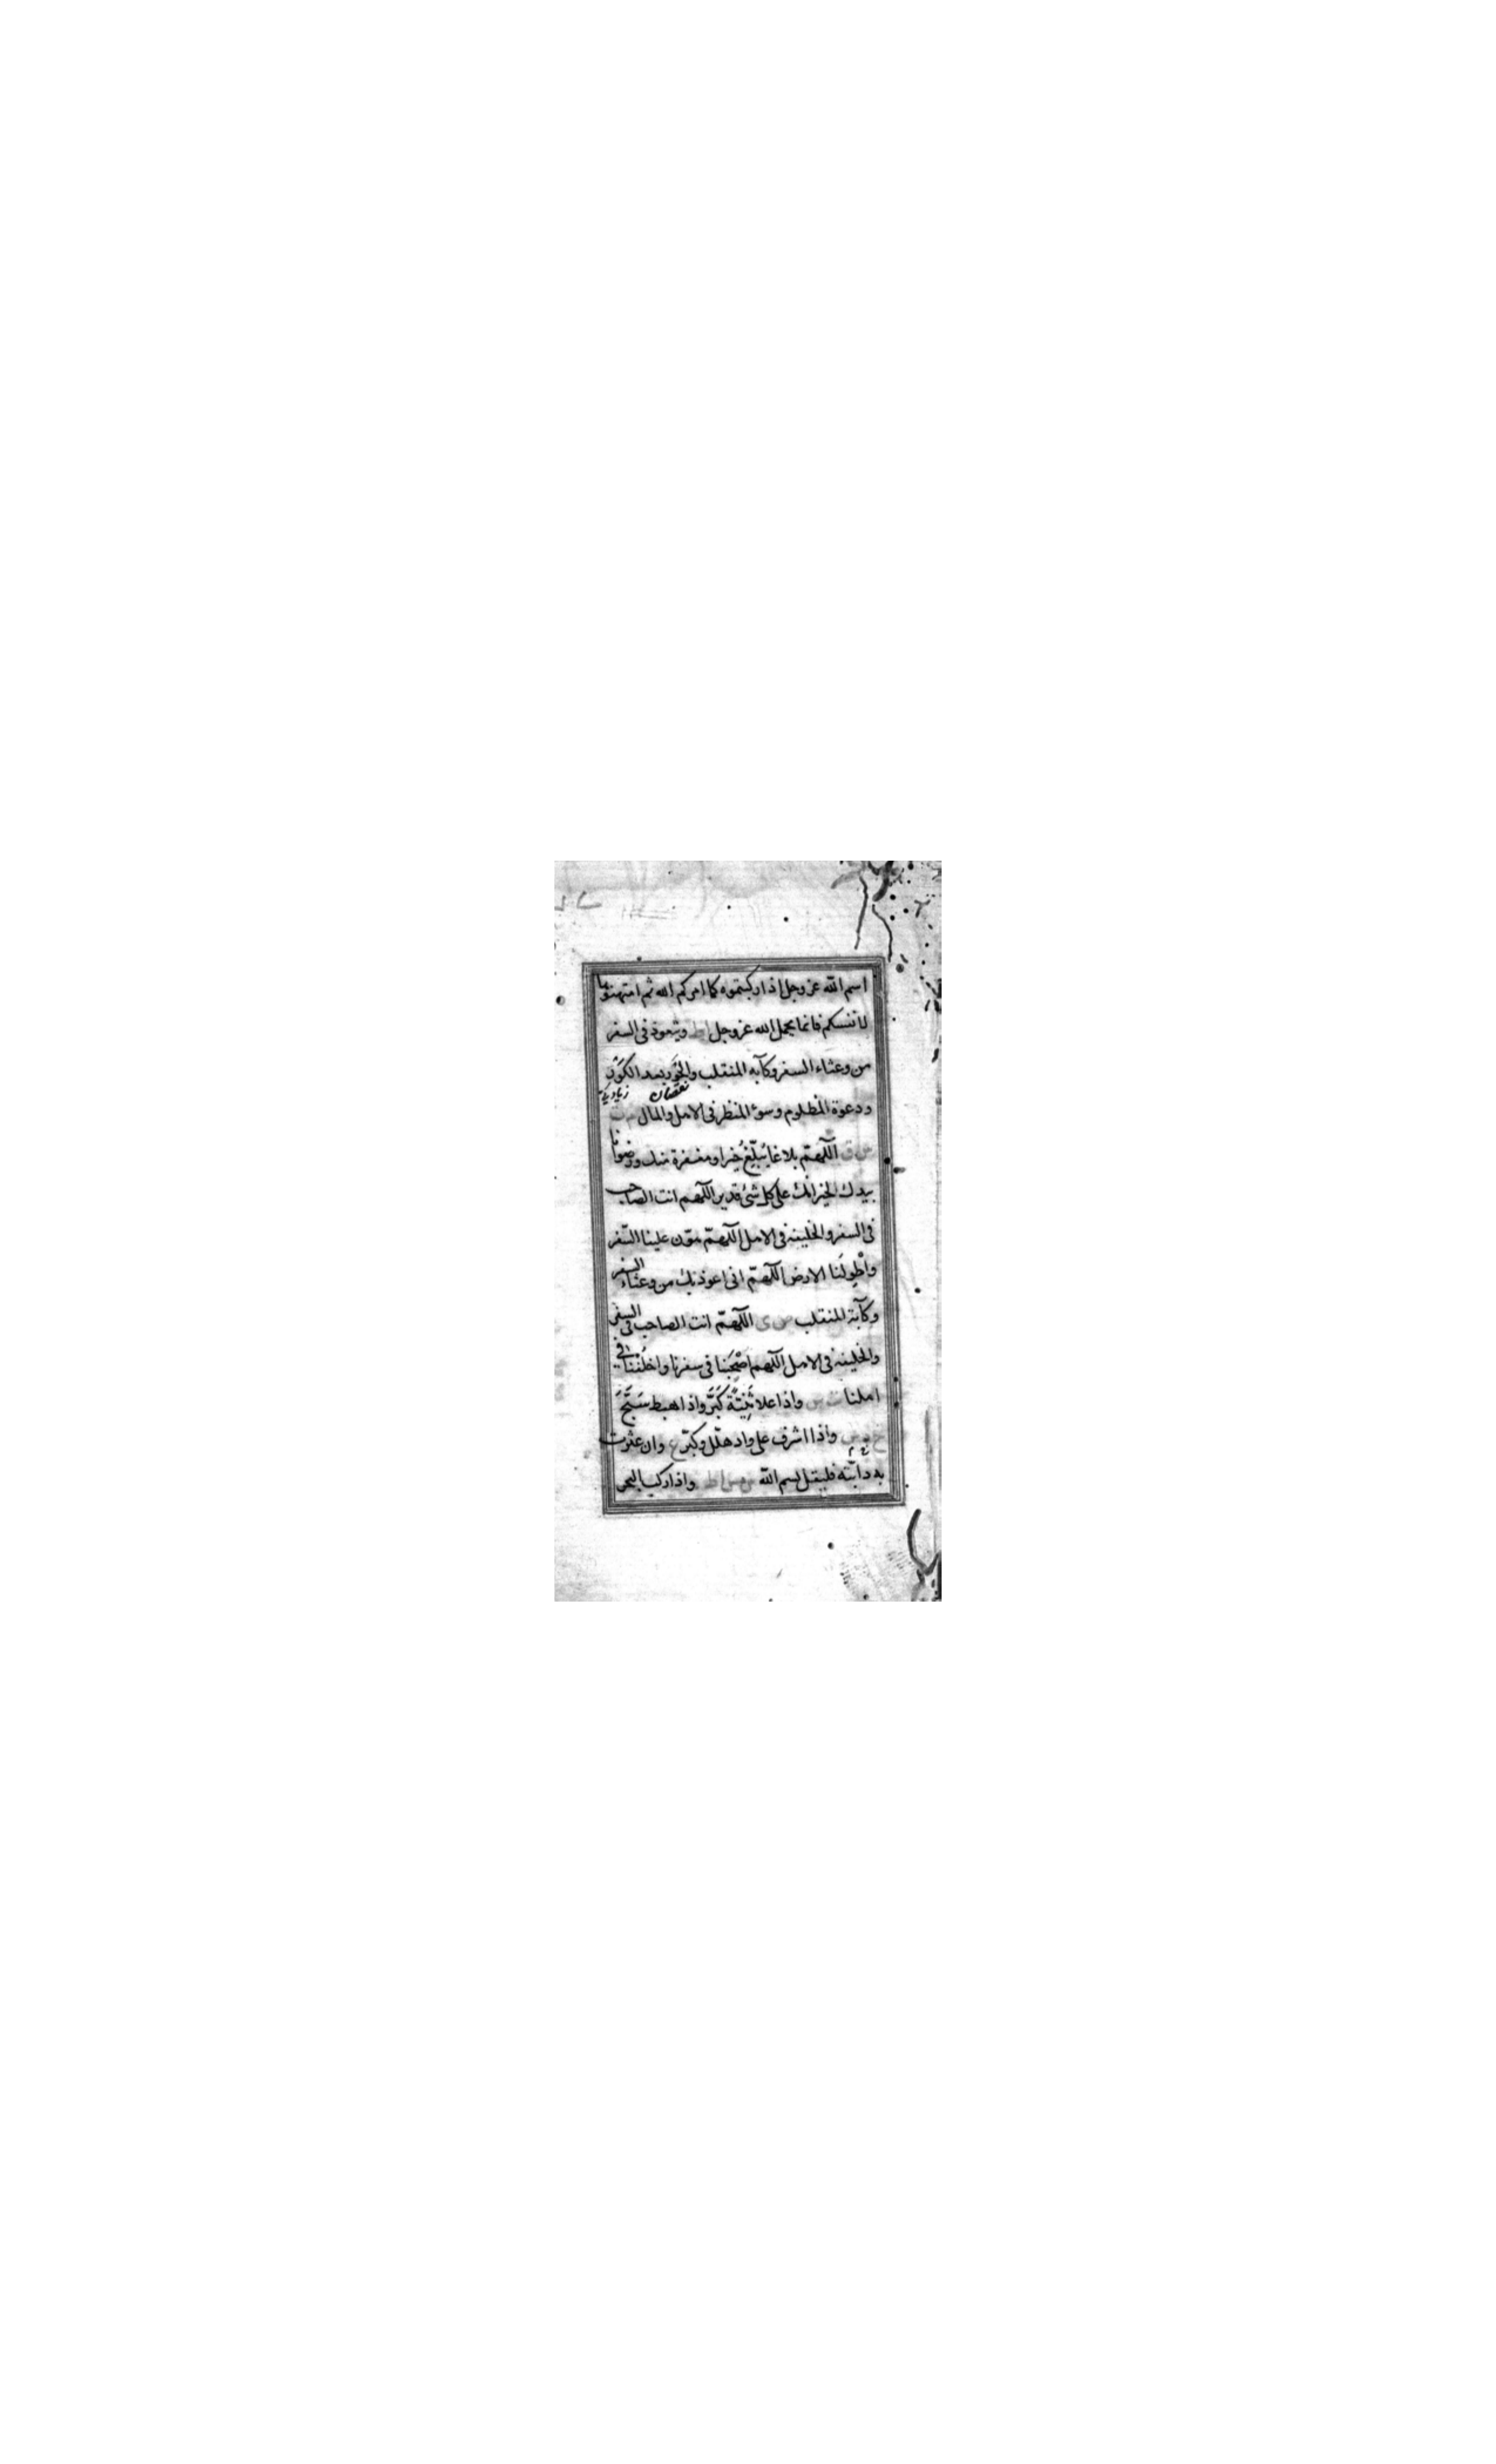 اسم الله عز وجل اذا ركبتموه كما امركم الله ثم امتهنوها
لانفسكم فانما يحمل الله عز وجل ا ط ويتعوذ فى السفر
من وعثاء السفر وكآبه المنقلب والحَوْر بعد الكَوْرِ
نقصان
ودعوة المظلوم وسوء المنظر فى الاهل والمال م ت
س ق اللّهمّ بلاغا يُبلّغ خيرا ومغفرة منك ورضوانا
بيدك الخير انك على كل شئ قدير اللهم انت الصاحب
فى السفر والخليفه فى الاهل اللّهمّ هوّن علينا السّفر
واطْوِ لَنا الارض اللّهمّ انى اعوذ بك من وعثاء السفر
وكآبة المنقلب ص ى اللّهمّ انت الصاحب فى السفر
والخليفه فى الاهل اللهم اصْحَبنا فى سفرنا واخلُفنا فى
اهلنا ت س واذا علا ثَنِيَّةً كَبَّرَ واذا هبط سَبَّحَ
خ د س واذا اشرف على واد هلّل وكبّر ع وان عثرت
به دابّته فليقل بسم الله س مس ا ط واذا ركب البحر